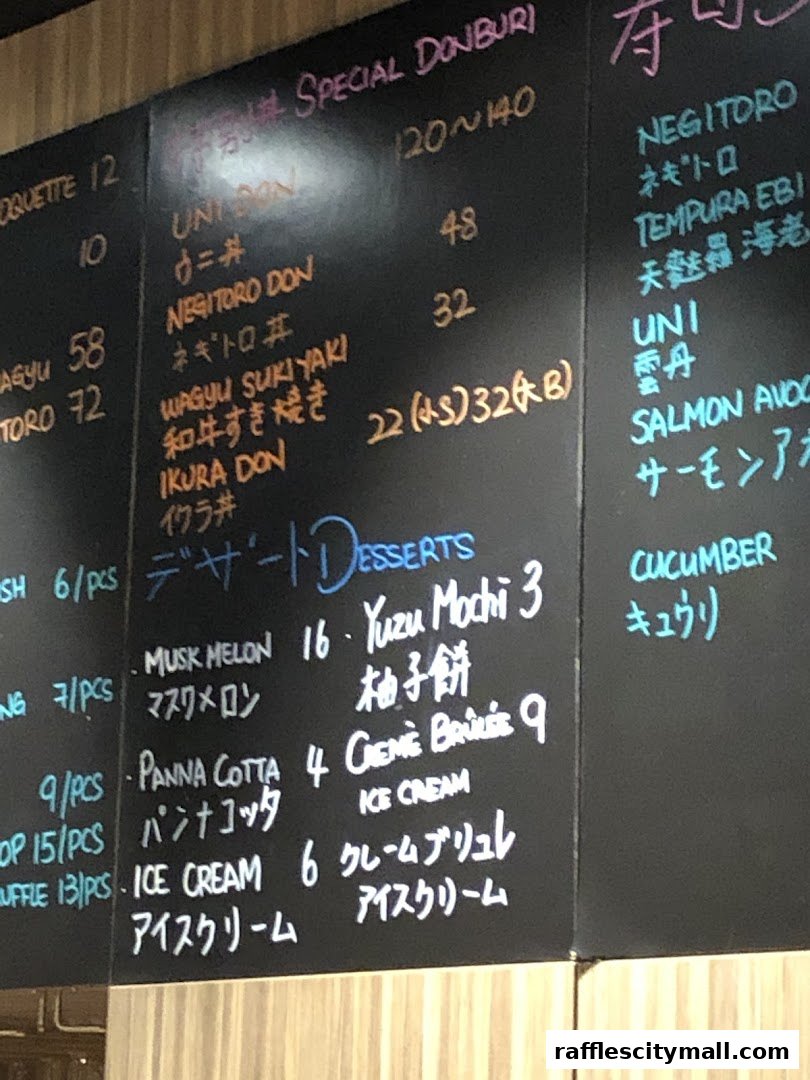 OQUETTE 12
10
AGYU 58
TORO 72
SH 6/PCS
NG 7/PCS
9/PCS
OP 15/PCS
UFFLE 13/PCS
特別丼 SPECIAL DONBURI
UNI DON 120~140
ウニ丼
NEGITORO DON 48
ネギトロ丼
WAGYU SUKIYAKI 32
和牛すき焼き
IKURA DON 22(小S)32(大B)
イクラ丼
デザート DESSERTS
· MUSK MELON 16
マスクメロン
· PANNA COTTA 4
パンナコッタ
· ICE CREAM 6
アイスクリーム
· Yuzu Mochi 3
柚子餅
CREMÈ BRÛLÉE 9
ICE CREAM
クレームブリュレ
アイスクリーム
NEGITORO
ネギトロ
TEMPURA EBI
天麩羅 海老
UNI
雲丹
SALMON AVOC
サーモンアボ
CUCUMBER
キュウリ
rafflescitymall.com